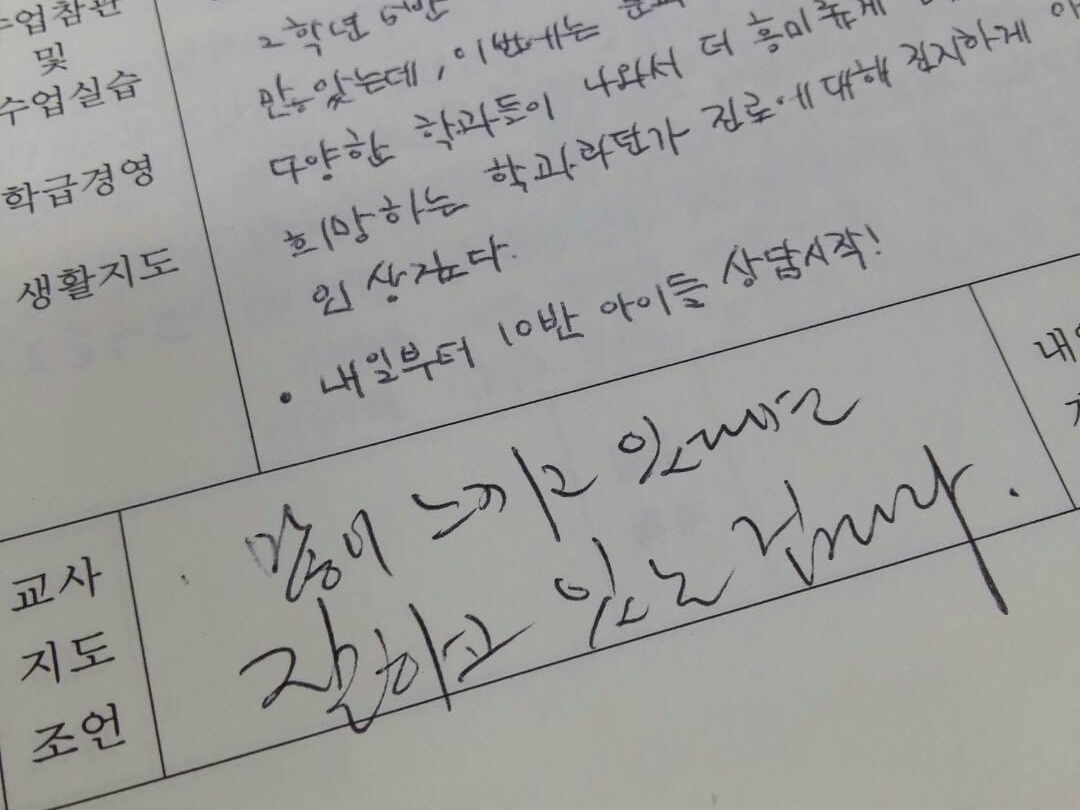 수업참관
및
수업실습
학급경영
생활지도
2학년 6반
만났는데, 이번에는
다양한 학과들이 나와서 더 흥미롭게
희망하는 학과라던가 진로에 대해 진지하게
인상깊다.
• 내일부터 10반 아이들 상담시작!
교사
지도
조언
많이 느끼고
잘하고 있는 겁니다.